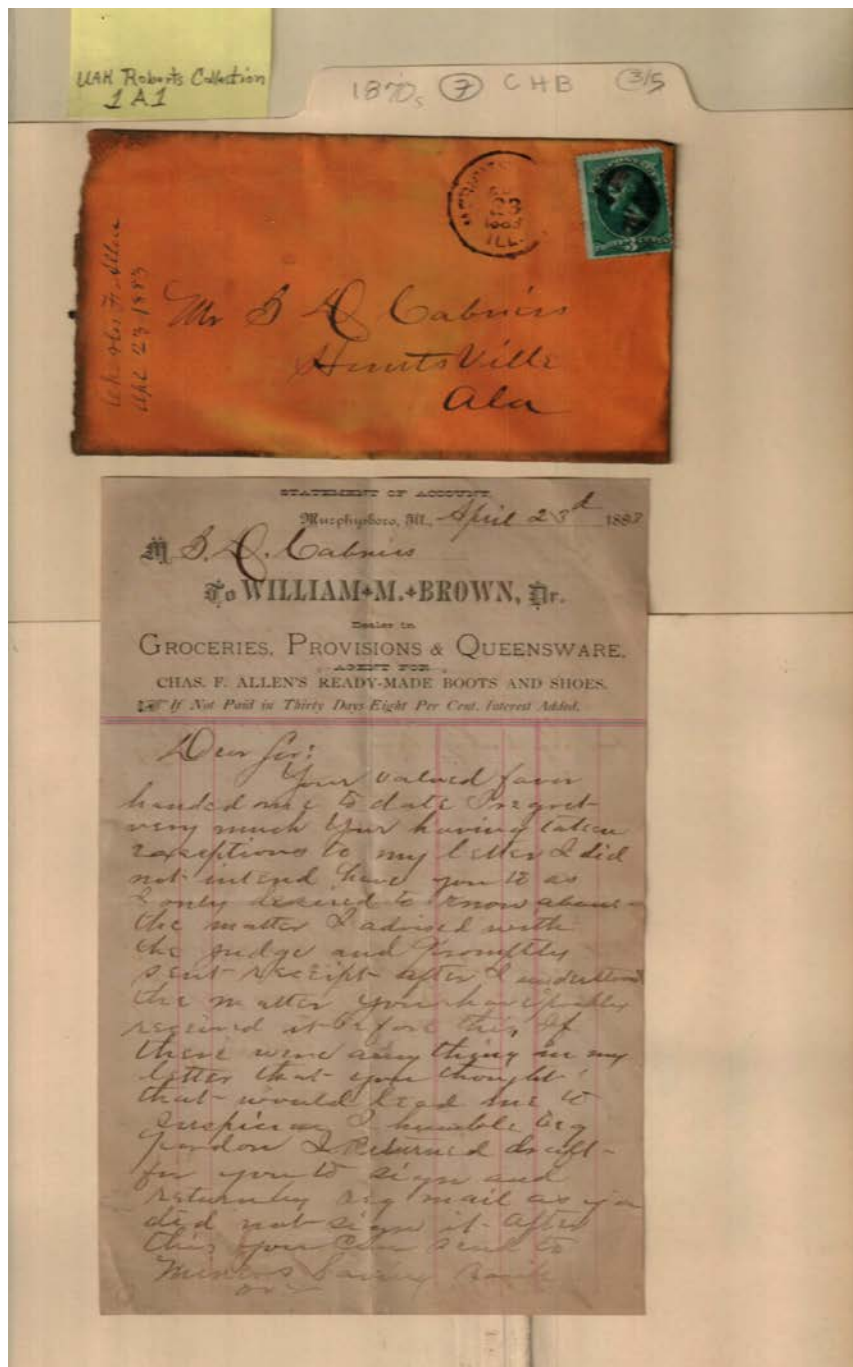 UAH Roberts Collection
1 A 1
1870s 7 CHB 3/5
ILL.
Apl 23 1883
Mr S D Cabniss
Huntsville
Ala
STATEMENT OF ACCOUNT.
Murphysboro, Ill., April 23d 1883
M S. D. Cabniss
To WILLIAM M. BROWN, Dr.
Dealer in
GROCERIES, PROVISIONS & QUEENSWARE.
AGENT FOR
CHAS. F. ALLEN'S READY-MADE BOOTS AND SHOES.
If Not Paid in Thirty Days Eight Per Cent. Interest Added.
Dear Sir:
Your valued favor
handed me to date I regret
very much your having taken
exceptions to my letter I did
not intend have you to as
I only desired to know about
the matter I advised with
the judge and promptly
sent receipt after I understood
the matter you have probably
received it before this If
there were any thing in my
letter that you thought
that would lead me to
suspicion I humble beg
pardon I returned draft
for you to sign and
return by reg mail as you
did not sign it After
this you can send to